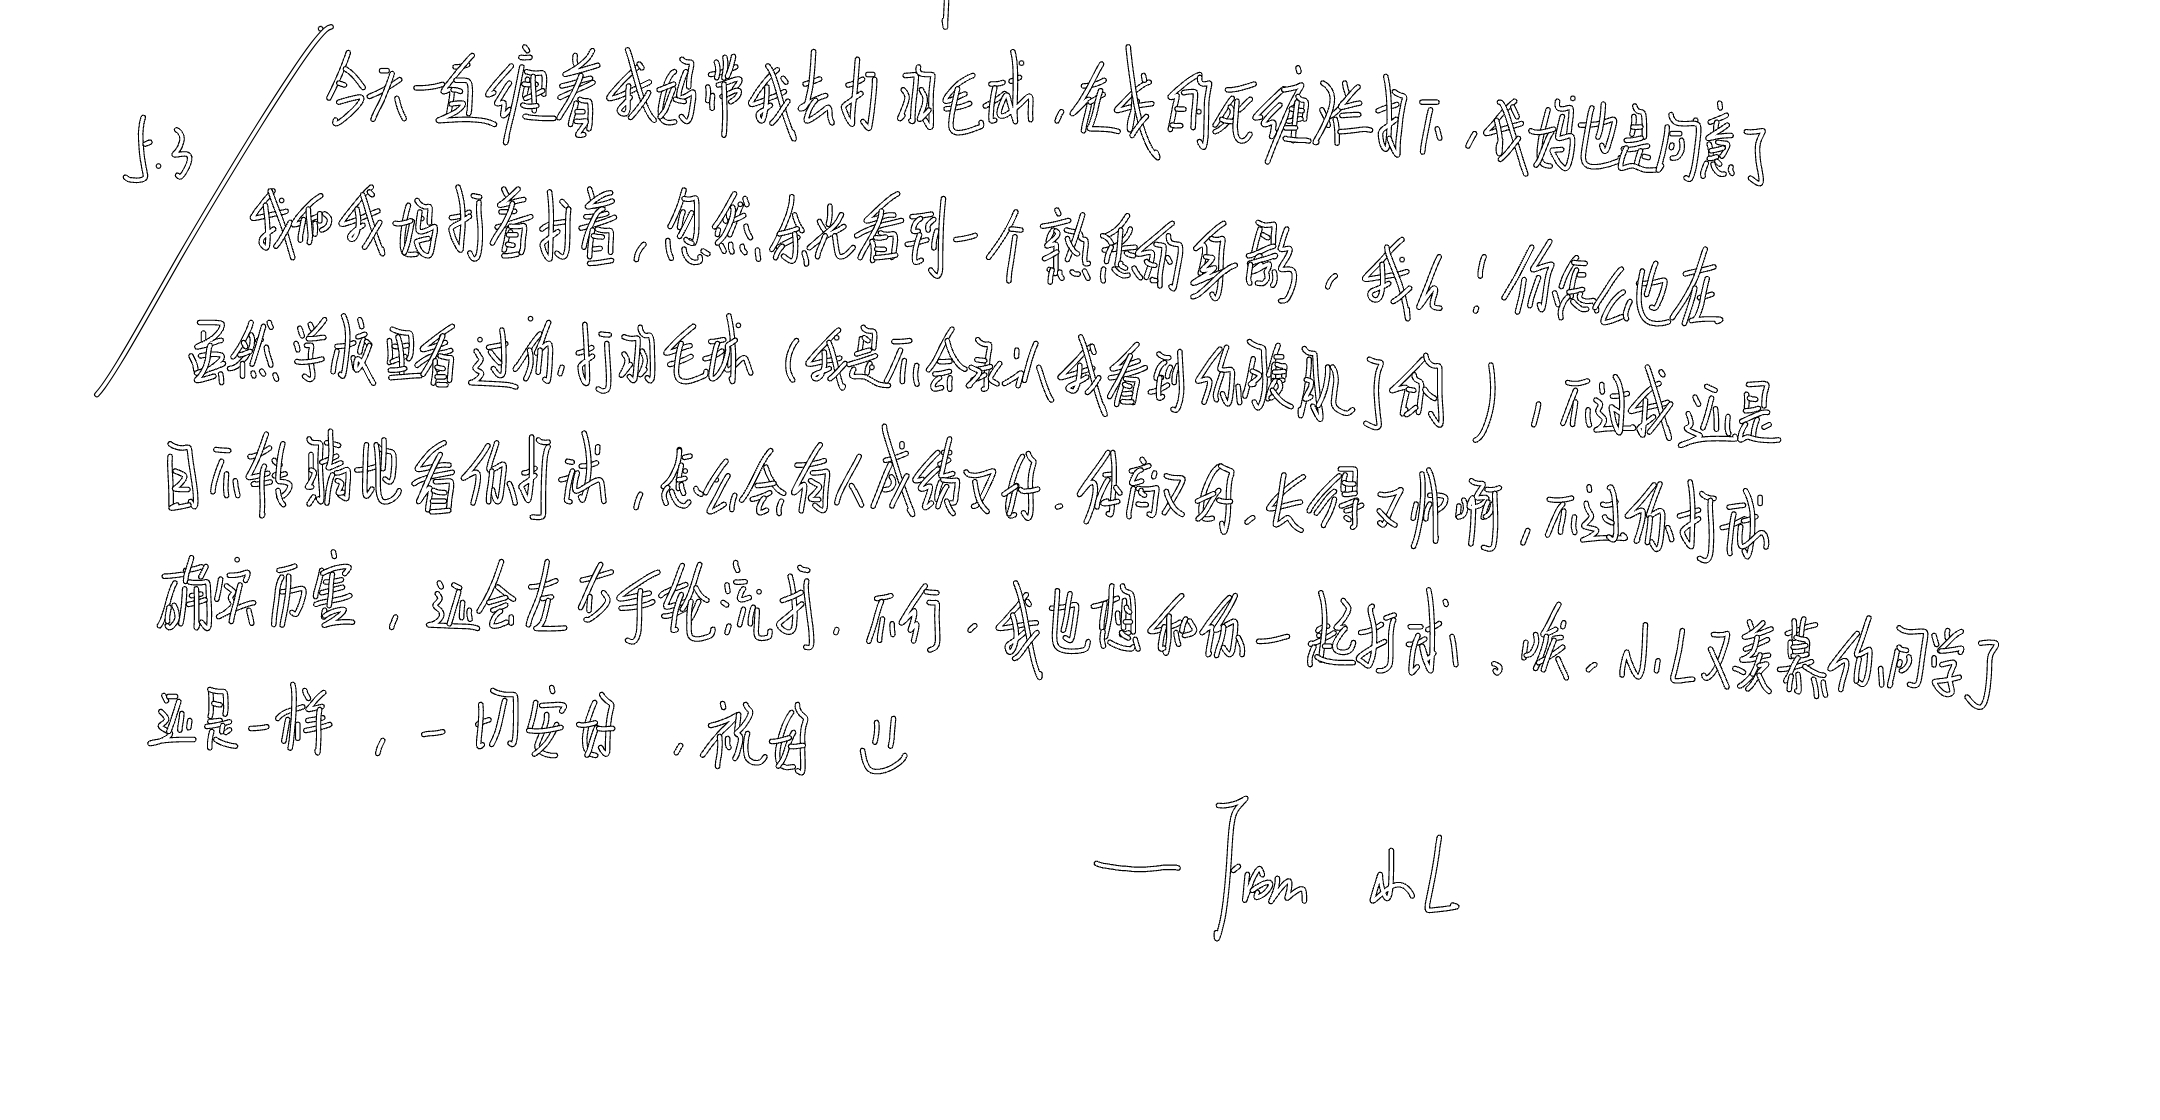 5.3
今天一直缠着我妈带我去打羽毛球,在我的死缠烂打下,我妈也是同意了
我和我妈打着打着,忽然余光看到一个熟悉的身影,我去!你怎么也在
虽然学校里看过你打羽毛球(我是不会承认我看到你腹肌了的),不过我还是
目不转睛地看你打球,怎么会有人成绩又好.体育又好.长得又帅啊,不过你打球
确实厉害,还会左右手轮流打.不行.我也想和你一起打球。唉.小L又羡慕你同学了
还是一样,一切安好,祝好
—From 小L